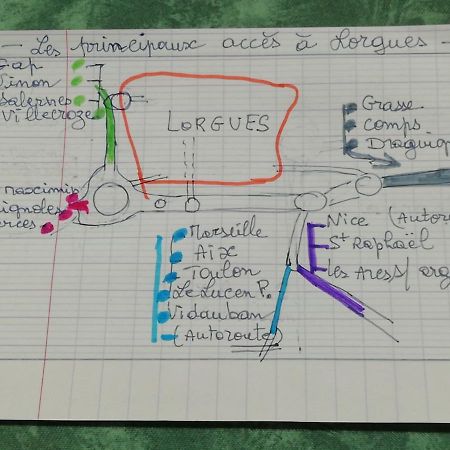 — Les principaux accès à Lorgues —
Gap
Vinon
Salernes
Villecroze
LORGUES
Grasse
Comps
Draguig
maximin
ignoles
erces
Marseille
Aix
Toulon
Le Lucen P.
Vidauban
(Autoroute)
Nice (Autoro
St Raphaël
les Arcs/arg